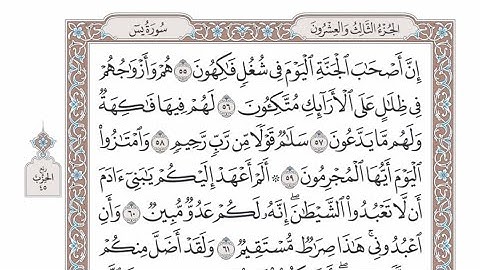 الجزء الثالث والعشرون
سورة يس
إِنَّ أَصْحَٰبَ ٱلْجَنَّةِ ٱلْيَوْمَ فِى شُغُلٍ فَٰكِهُونَ ٥٥ هُمْ وَأَزْوَٰجُهُمْ
فِى ظِلَٰلٍ عَلَى ٱلْأَرَآئِكِ مُتَّكِـُٔونَ ٥٦ لَهُمْ فِيهَا فَٰكِهَةٌ
وَلَهُم مَّا يَدَّعُونَ ٥٧ سَلَٰمٌ قَوْلًا مِّن رَّبٍّ رَّحِيمٍ ٥٨ وَٱمْتَٰزُوا۟
ٱلْيَوْمَ أَيُّهَا ٱلْمُجْرِمُونَ ٥٩ ۞ أَلَمْ أَعْهَدْ إِلَيْكُمْ يَٰبَنِىٓ ءَادَمَ
أَن لَّا تَعْبُدُوا۟ ٱلشَّيْطَٰنَ ۖ إِنَّهُۥ لَكُمْ عَدُوٌّ مُّبِينٌ ٦٠ وَأَنِ
ٱعْبُدُونِى ۚ هَٰذَا صِرَٰطٌ مُّسْتَقِيمٌ ٦١ وَلَقَدْ أَضَلَّ مِنكُمْ
الحزب
٤٥